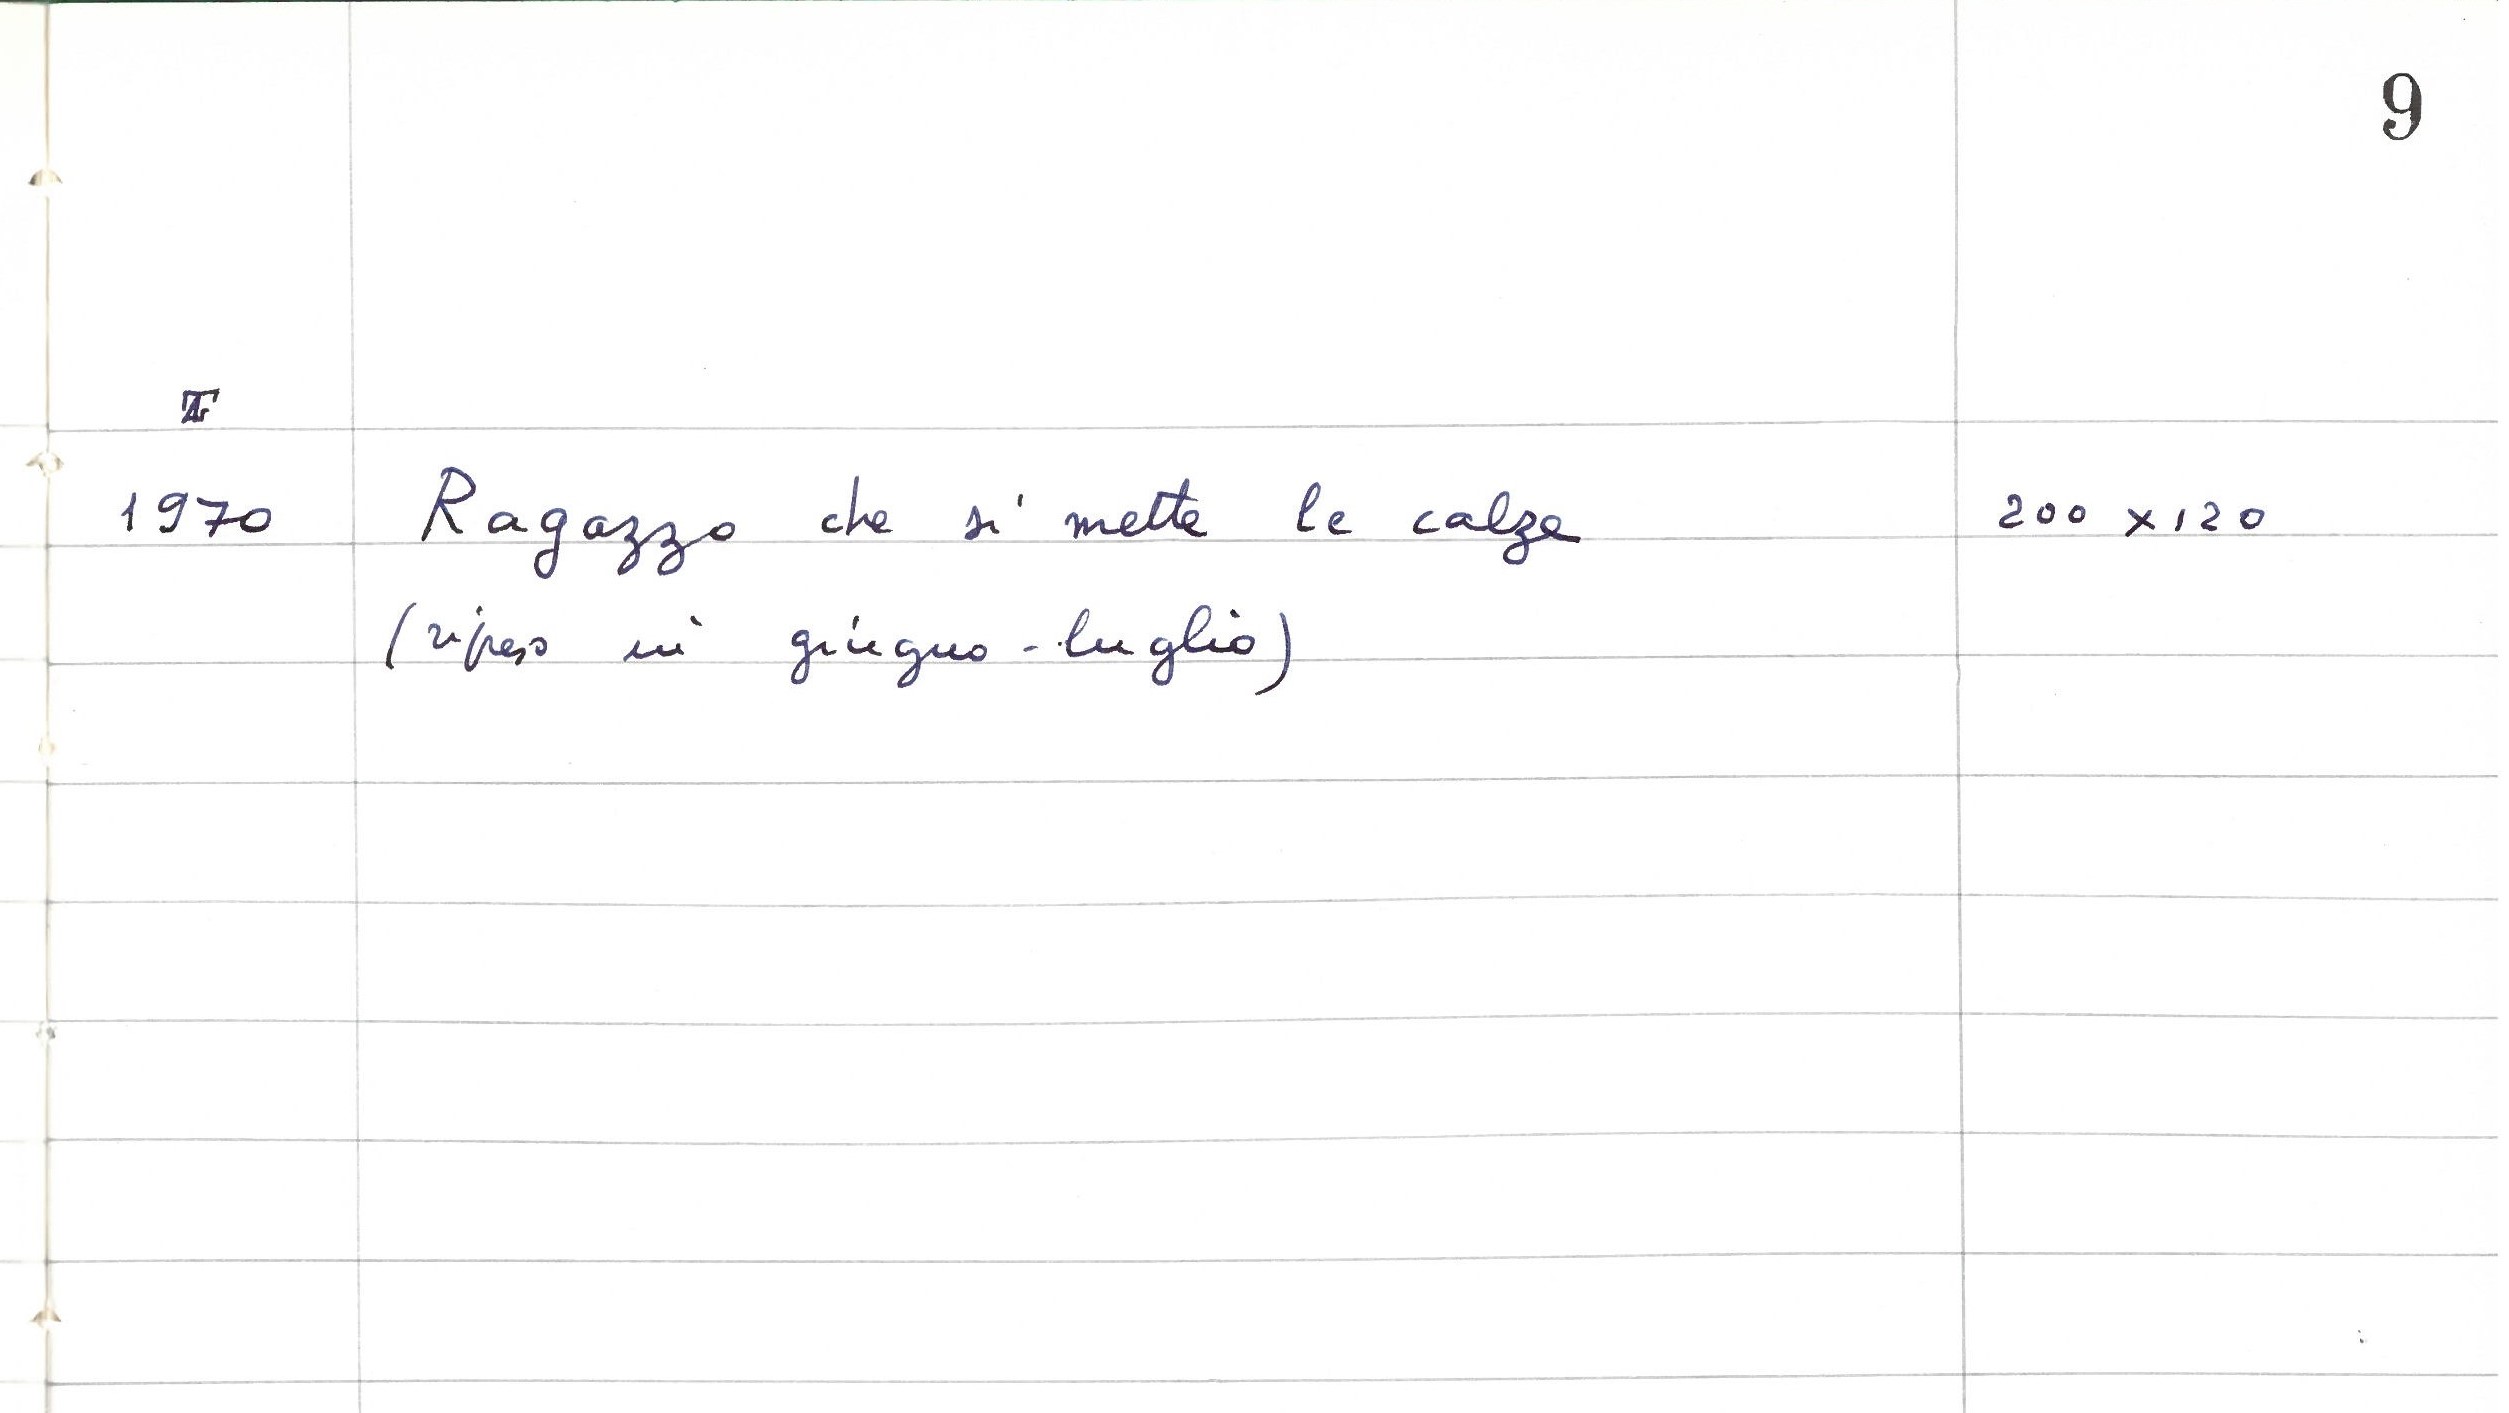 9
1970 Ragazzo che si mette le calze 200 x 120
(ripreso in giugno - luglio)